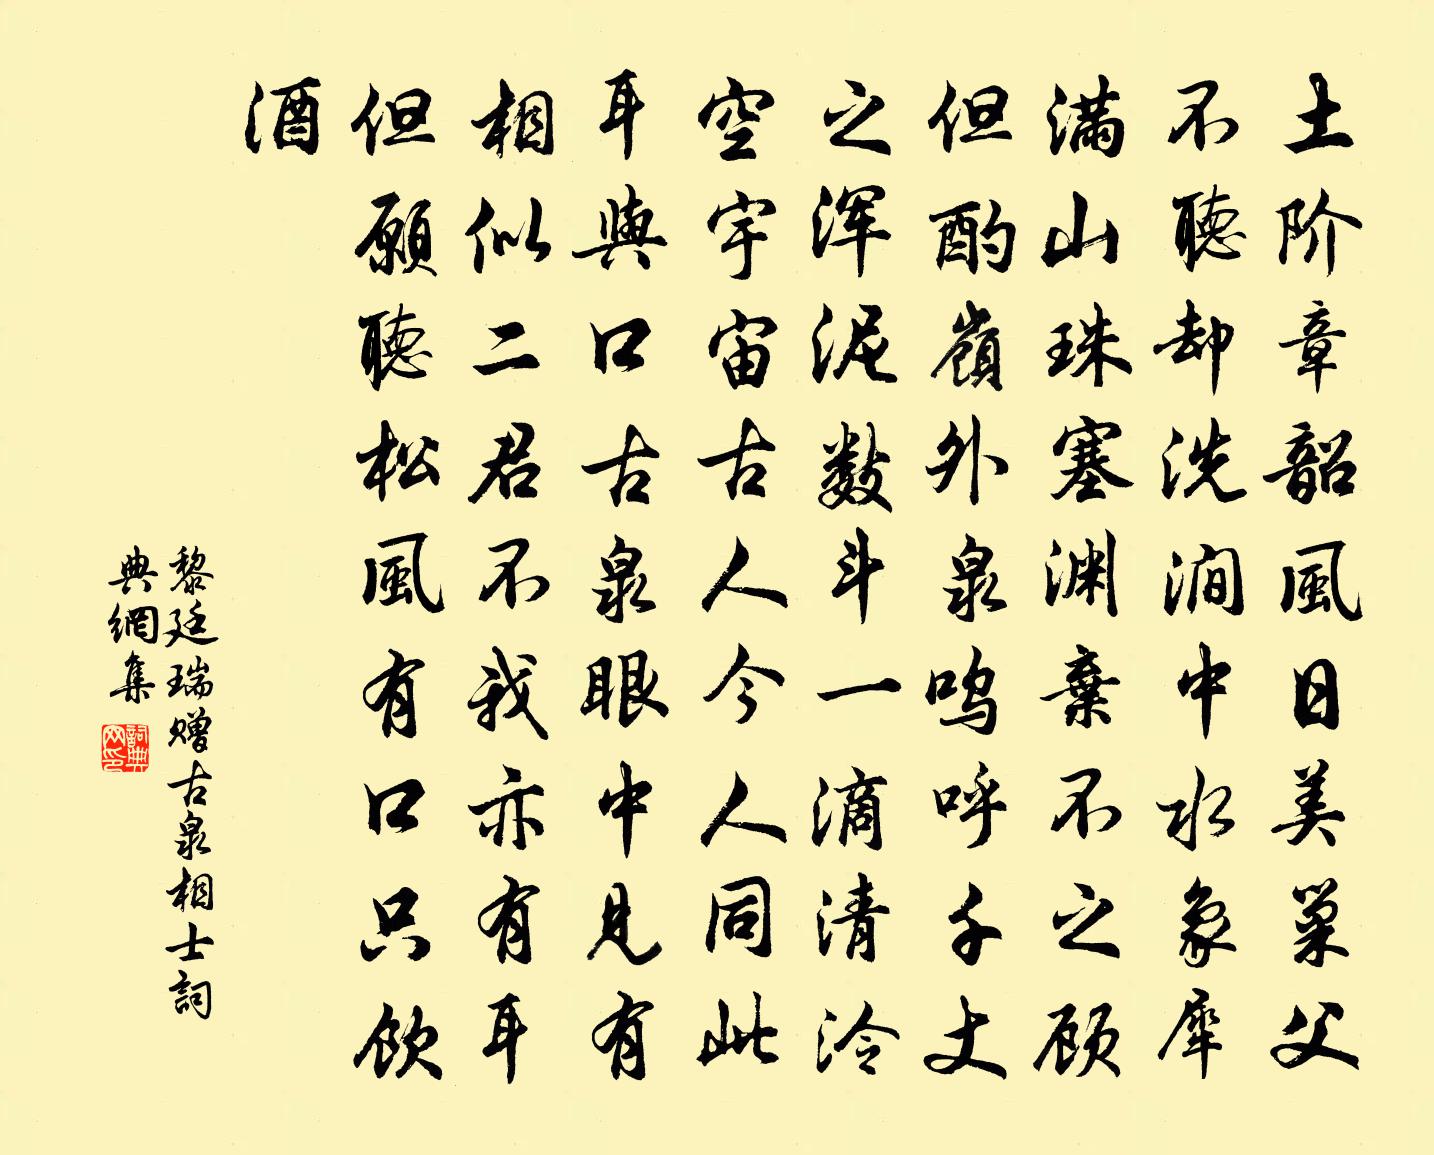 土阶章韶風日美巢父
不聽却洗澗中水象犀
满山珠塞渊棄不之顾
但酌嶺外泉鸣呼千丈
之浑泥数斗一滴清泠
空宇宙古人今人同此
耳與口古泉眼中見有
相似二君不我亦有耳
但願聽松風有口只飲
酒
黎廷瑞赠古泉相士詞
典網集
詞典
网印